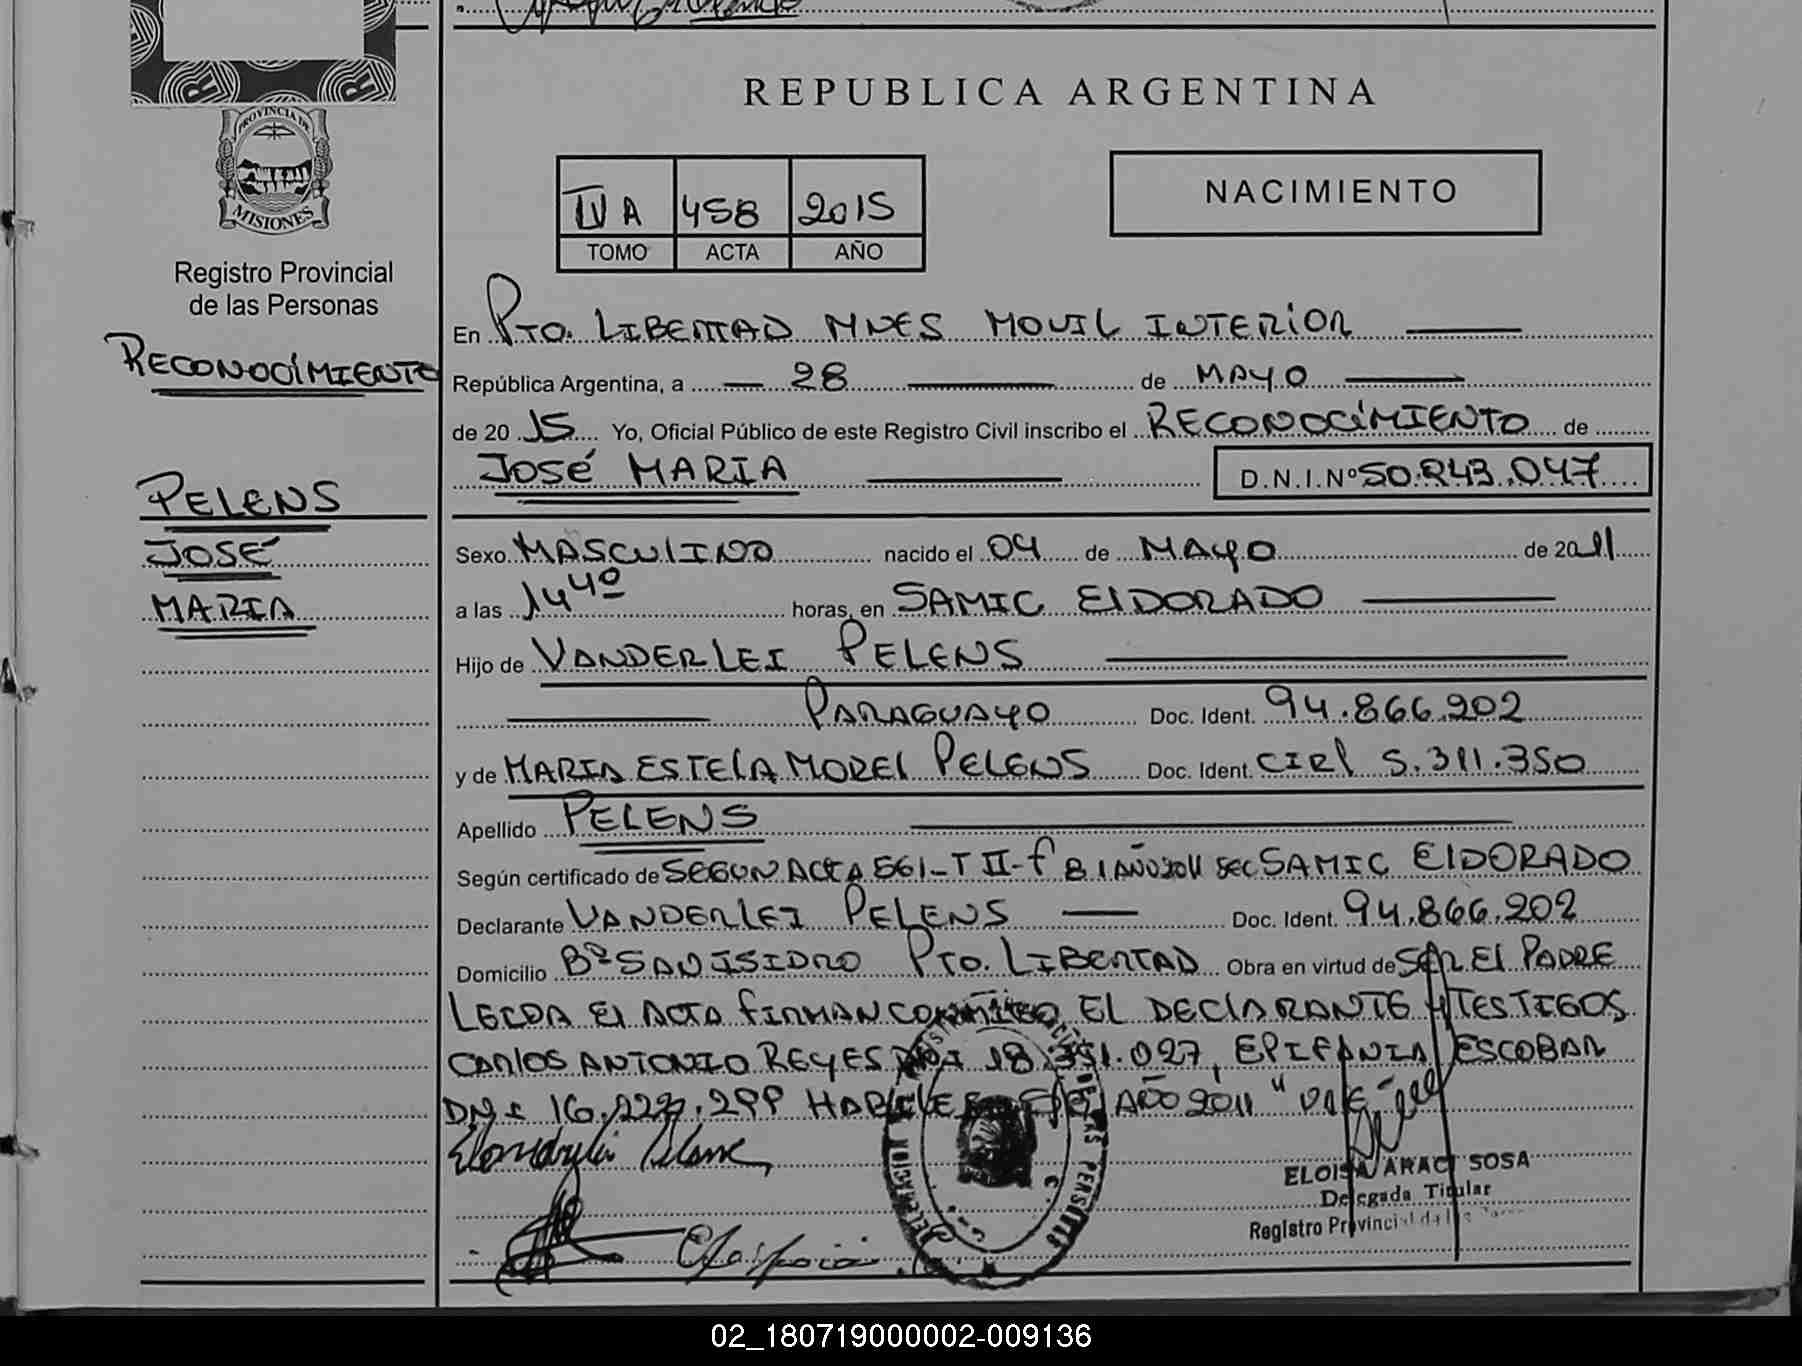 REPUBLICA ARGENTINA
PROVINCIA DE
MISIONES
Registro Provincial
de las Personas
RECONOCIMIENTO
PELENS
JOSÉ
MARIA
IV A 458 2015
TOMO ACTA AÑO
NACIMIENTO
En PTO. LIBERTAD MNES MOVIL INTERIOR
República Argentina, a 28 de MAYO
de 2015 Yo, Oficial Público de este Registro Civil inscribo el RECONOCIMIENTO de
JOSÉ MARIA D.N.I.Nº 50.243.047
Sexo MASCULINO nacido el 04 de MAYO de 2011
a las 14 40 horas, en SAMIC ElDORADO
Hijo de VANDERLEI PELENS
PARAGUAYO Doc. Ident. 94.866.202
y de MARIA ESTElA MOREl PELENS Doc. Ident. CIRl 5.311.350
Apellido PELENS
Según certificado de SEGUN ACTA 561-T II-f 81 AÑO 2011 SEC SAMIC ElDORADO
Declarante VANDERLEI PELENS Doc. Ident. 94.866.202
Domicilio Bº SAN ISIDRO PTO. LIBERTAD Obra en virtud de SER El PADRE
LEIDA El ACTA fIRMAN CONMIGO EL DEClARANTE Y TESTIGOS
CARlOS ANTONIO REYES DNI 18.351.027, EPIFANIA ESCOBAR
DNI 16. HABILES AÑO 2011" VALE
ELOISA ARACI SOSA
Delegada Titular
Registro Provincial de las
02_180719000002-009136